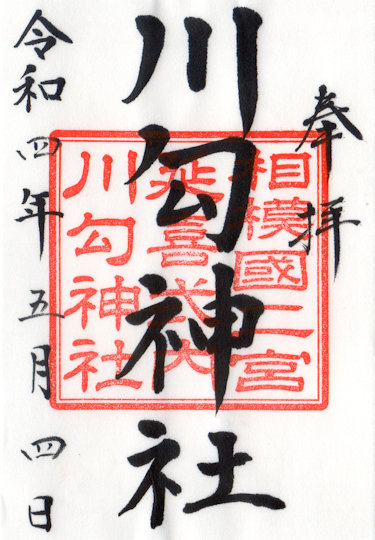 奉拝
川勾神社
相模國二宮
延喜式内
川勾神社
令和四年五月四日